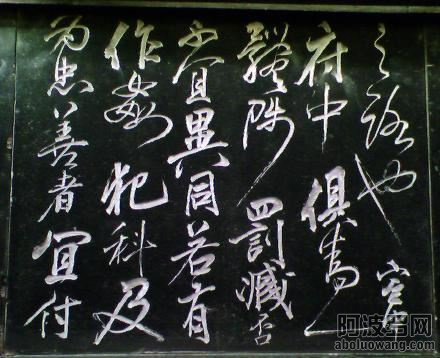 之路也宮
府中俱為一
體陟罰臧否
不宜異同若有
作姦犯科及
為忠善者宜付
阿波罗网
aboluowang.com